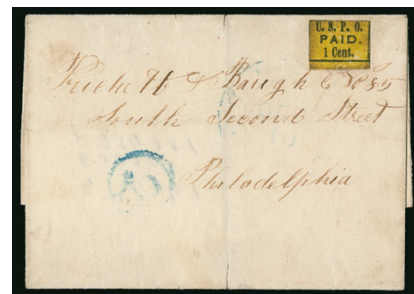 U. S. P. O.
PAID.
1 Cent.
Prichett & Baugh No 85
South Second Street
Philadelphia